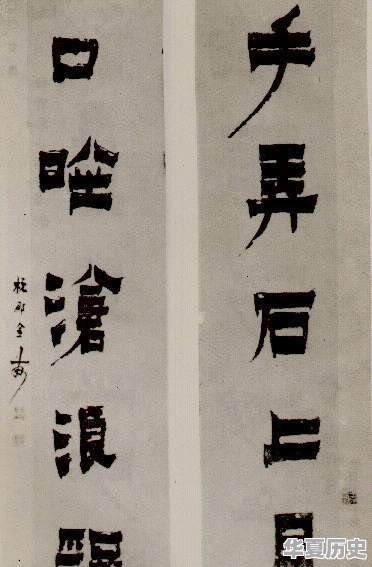 手弄石上月
口滄浪
杭郡金農
华夏历史